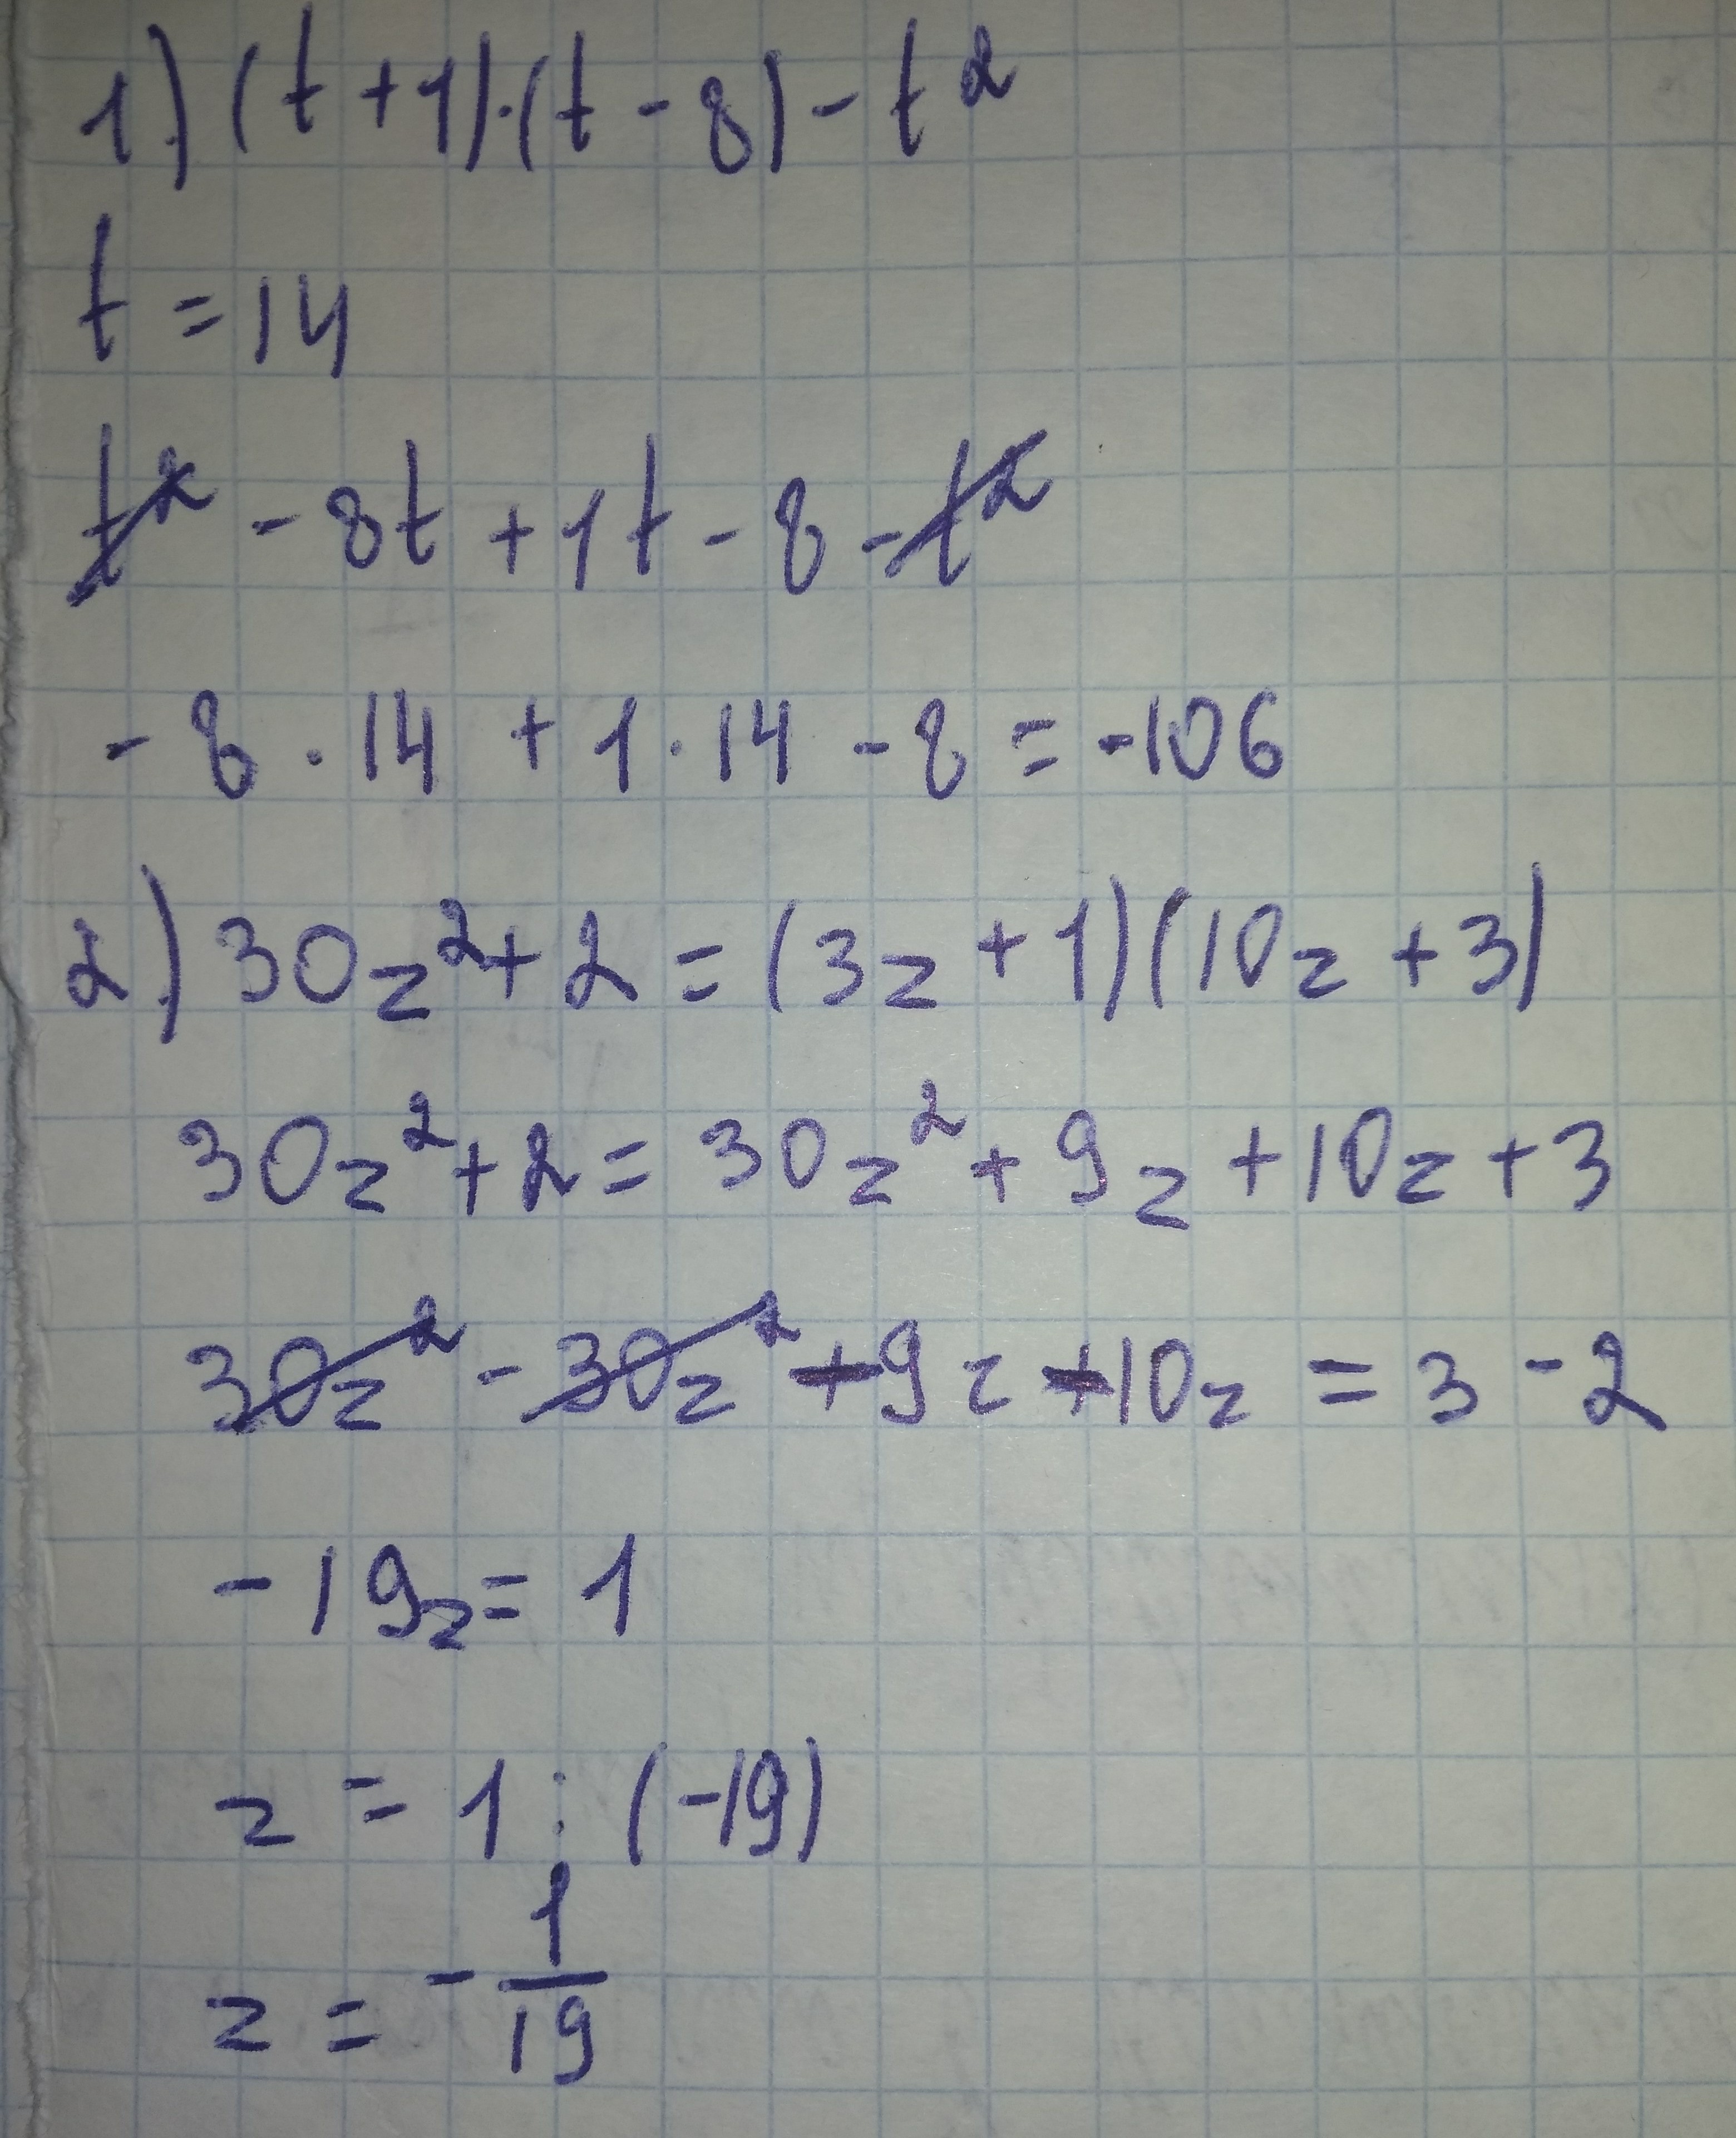 1) (t+1)·(t-8)-t²
t = 14
t² - 8t + 1t - 8 - t²
-8 · 14 + 1 · 14 - 8 = -106
2) 30z² + 2 = (3z + 1)(10z + 3)
30z² + 2 = 30z² + 9z + 10z + 3
30z² - 30z² - 9z - 10z = 3 - 2
-19z = 1
z = 1 : (-19)
z = - 1/19